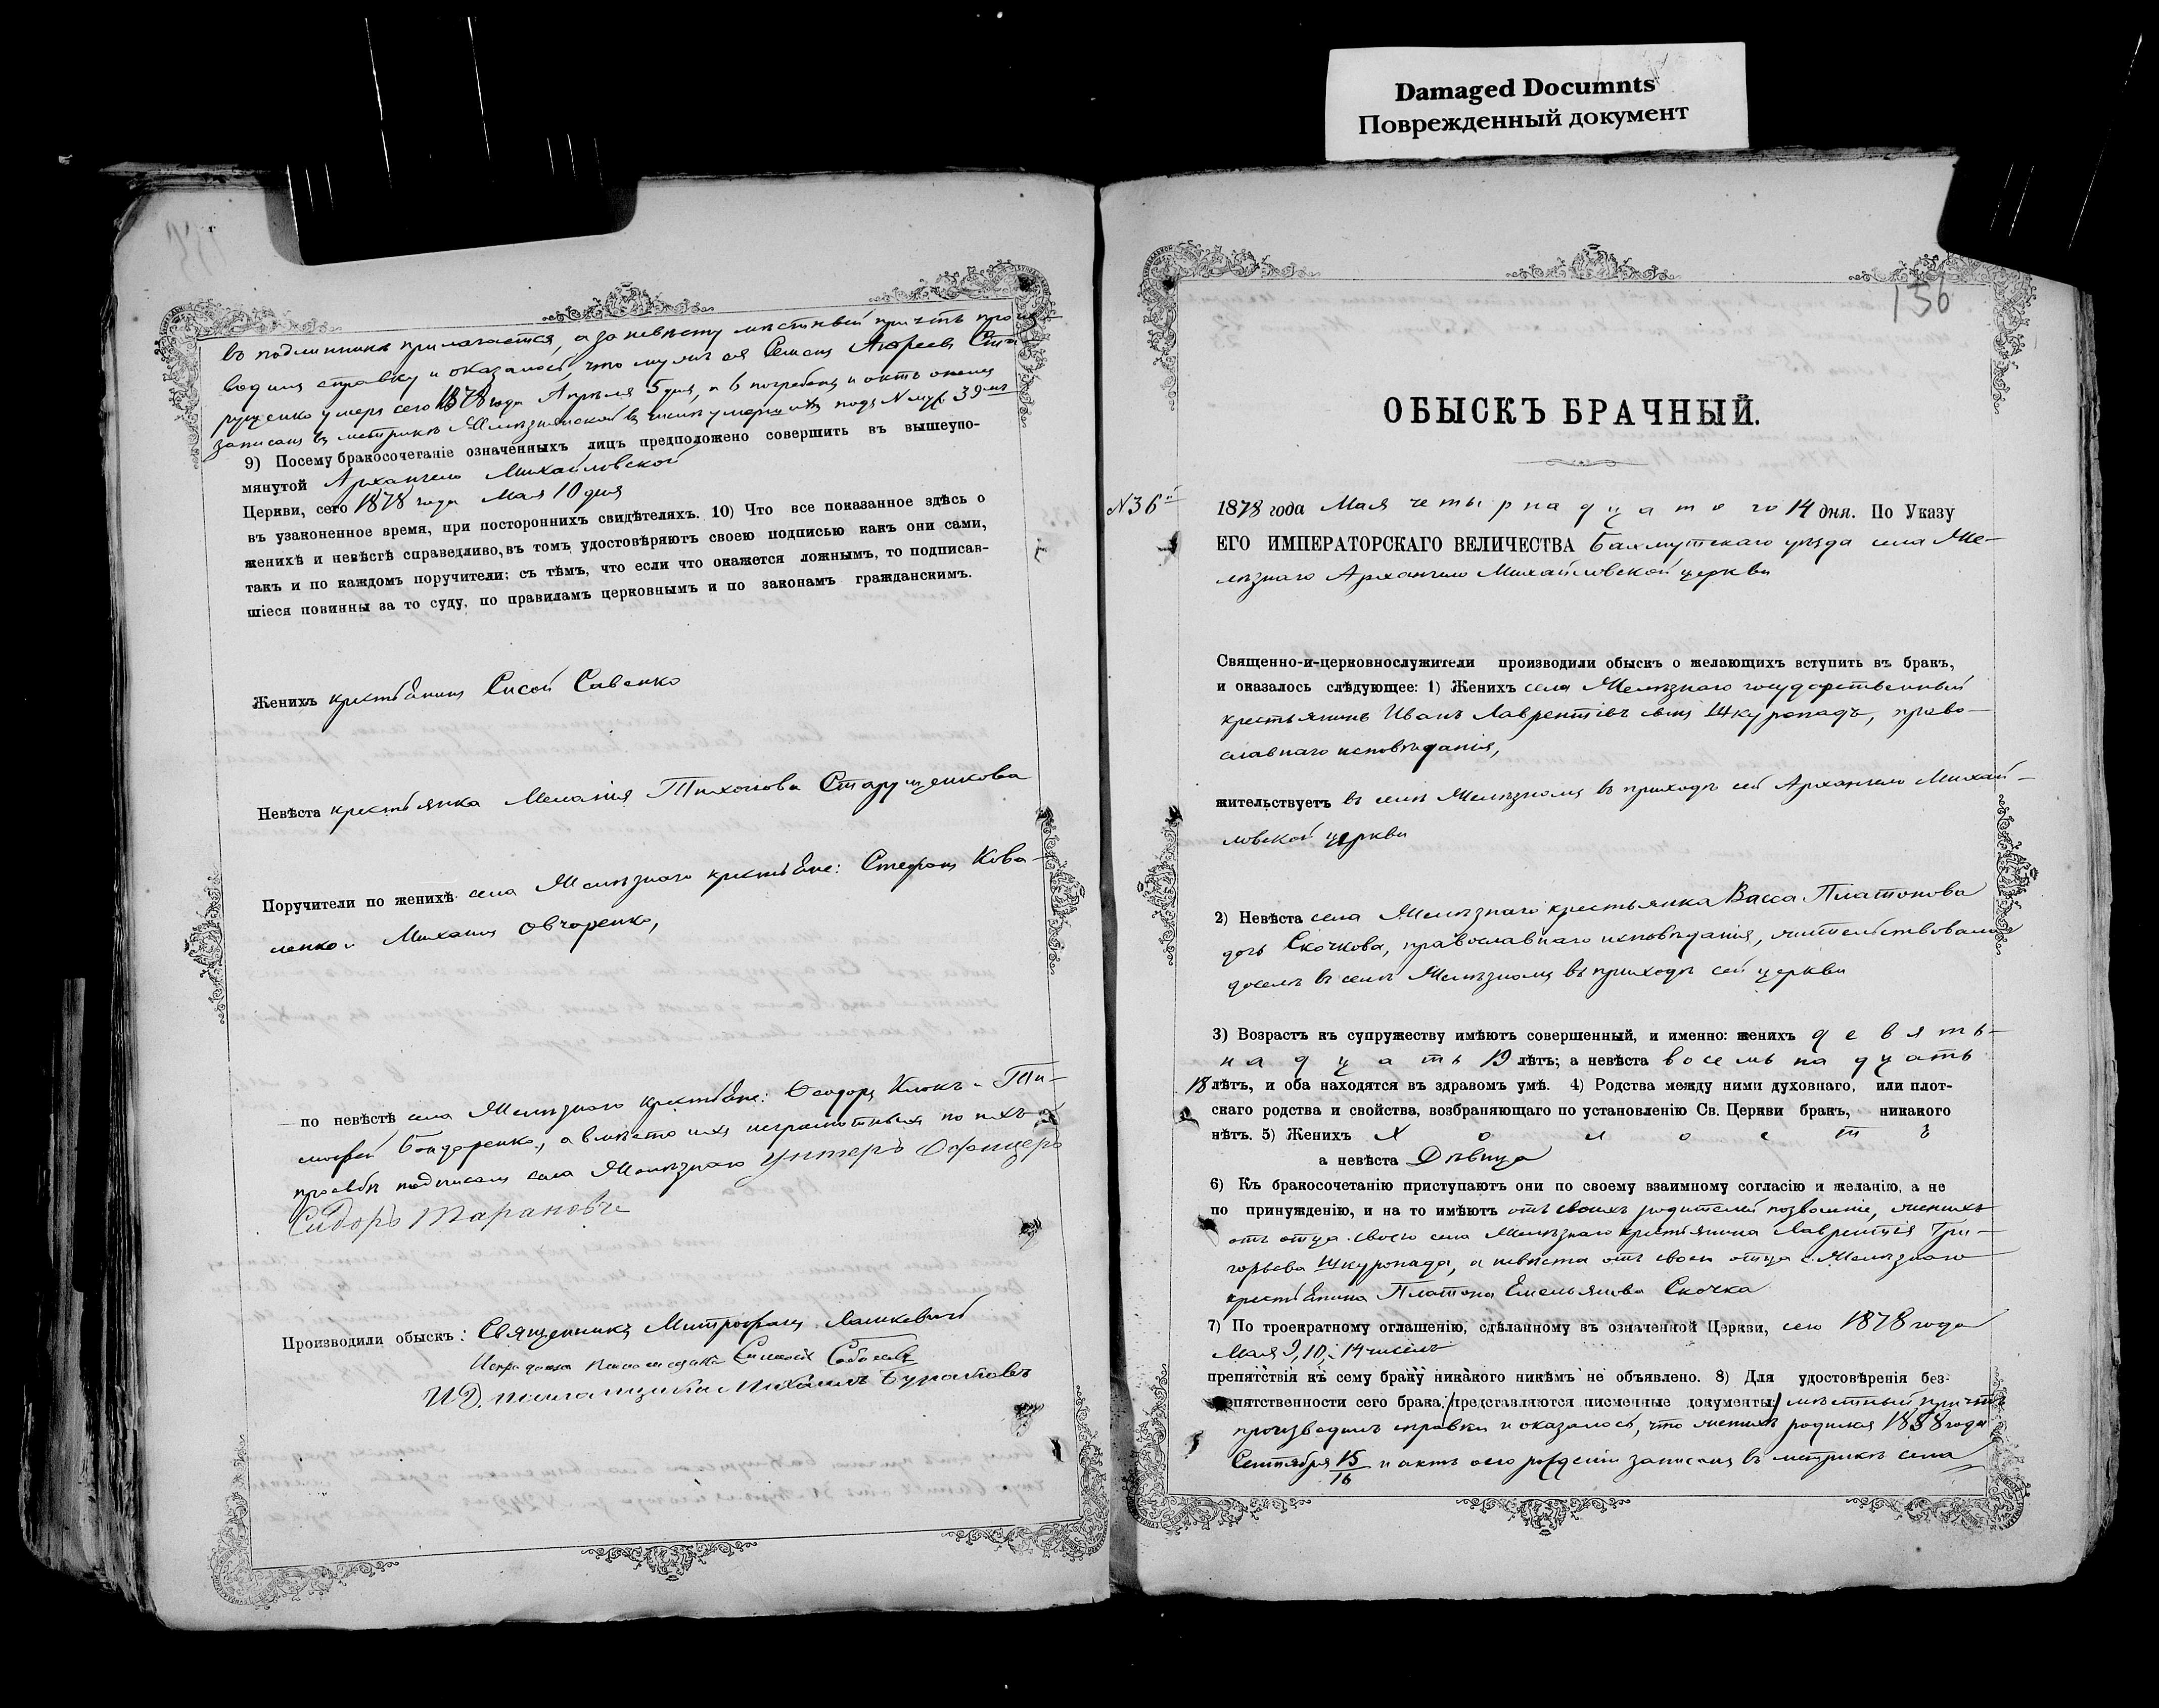 Damaged Documnts
Поврежденный документ
въ подлинникѣ прилагается, а за невѣсту мѣстный причтъ произ-
водилъ справку и оказалось, что мужъ ея Семенъ Андреевъ Ста-
рущенко умеръ сего 1878 года Апрѣля 5 дня, а 6 погребенъ и актъ о немъ
записанъ въ метрикѣ Желѣзнянской въ числѣ умершихъ подъ № муж. 39мъ
9) Посему бракосочетаніе означенныхъ лицъ предположено совершить въ вышеупо-
мянутой Архангело Михайловской
Церкви, сего 1878 года Мая 10 дня
въ узаконенное время, при постороннихъ свидѣтеляхъ. 10) Что все показанное здѣсь о
женихѣ и невѣстѣ справедливо, въ томъ удостовѣряютъ своею подписью какъ они сами,
такъ и по каждомъ поручители; съ тѣмъ, что если что окажется ложнымъ, то подписав-
шіеся повинны за то суду, по правиламъ церковнымъ и по законамъ гражданскимъ.
Женихъ крестьянинъ Сисой Савенко
Невѣста крестьянка Меланія Тихонова Старущенкова
Поручители по женихѣ села Желѣзнаго крестьяне: Стефанъ Кова-
ленко и Михаилъ Овчаренко,
по невѣстѣ села Желѣзнаго крестьяне: Ѳеодоръ Клокъ и Ти-
моѳей Бондаренко, а вмѣсто ихъ неграмотныхъ по ихъ
просьбѣ подписалъ села Желѣзнаго Унтеръ Офицеръ
Сидоръ Тарановъ
Производили обыскъ: Священникъ Митрофанъ Лашкевичъ
Псаломщикъ
И.Д. псаломщика Михаилъ
136
ОБЫСКЪ БРАЧНЫЙ.
№36й 1878 года Мая четырнадцатого 14 дня. По Указу
ЕГО ИМПЕРАТОРСКАГО ВЕЛИЧЕСТВА Бахмутскаго уѣзда села Же-
лѣзнаго Архангело Михайловской церкви
Священно-и-церковнослужители производили обыскъ о желающихъ вступить въ бракъ,
и оказалось слѣдующее: 1) Женихъ села Желѣзнаго государственный
крестьянинъ Иванъ Лаврентіевъ сынъ Шкуропадъ, право-
славнаго исповѣданія,
жительствуетъ въ селѣ Желѣзномъ въ приходѣ сей Архангело Михай-
ловской церкви
2) Невѣста села Желѣзнаго крестьянка Васса Платонова
дочь Скочкова, православнаго исповѣданія, жительствовала
доселѣ въ селѣ Желѣзномъ въ приходѣ сей церкви
3) Возрастъ къ супружеству имѣютъ совершенный, и именно: женихъ девять-
надцать 19 лѣтъ; а невѣста восемьнадцать
18 лѣтъ, и оба находятся въ здравомъ умѣ. 4) Родства между ними духовнаго, или плот-
скаго родства и свойства, возбраняющаго по установленію Св. Церкви бракъ, никакого
нѣтъ. 5) Женихъ Холостъ
а невѣста Дѣвица
6) Къ бракосочетанію приступаютъ они по своему взаимному согласію и желанію, а не
по принужденію, и на то имѣютъ отъ своихъ родителей позволеніе, женихъ
отъ отца своего села Желѣзнаго крестьянина Лаврентія Гри-
горьева Шкуропада, а невѣста отъ своего отца с. Желѣзнаго
крестьянина Платона Емельянова Скочка
7) По троекратному оглашенію, сдѣланному въ означенной Церкви, сего 1878 года
Мая 9, 10, и 14 числъ
препятствія къ сему браку никакого никѣмъ не объявлено. 8) Для удостовѣренія без-
репятственности сего брака /представляются писменные документы:/ мѣстный причтъ
производилъ справки и оказалось, что женихъ родился 1858 года
Сентября 15/16 и актъ о его рожденіи записанъ въ метрикѣ села